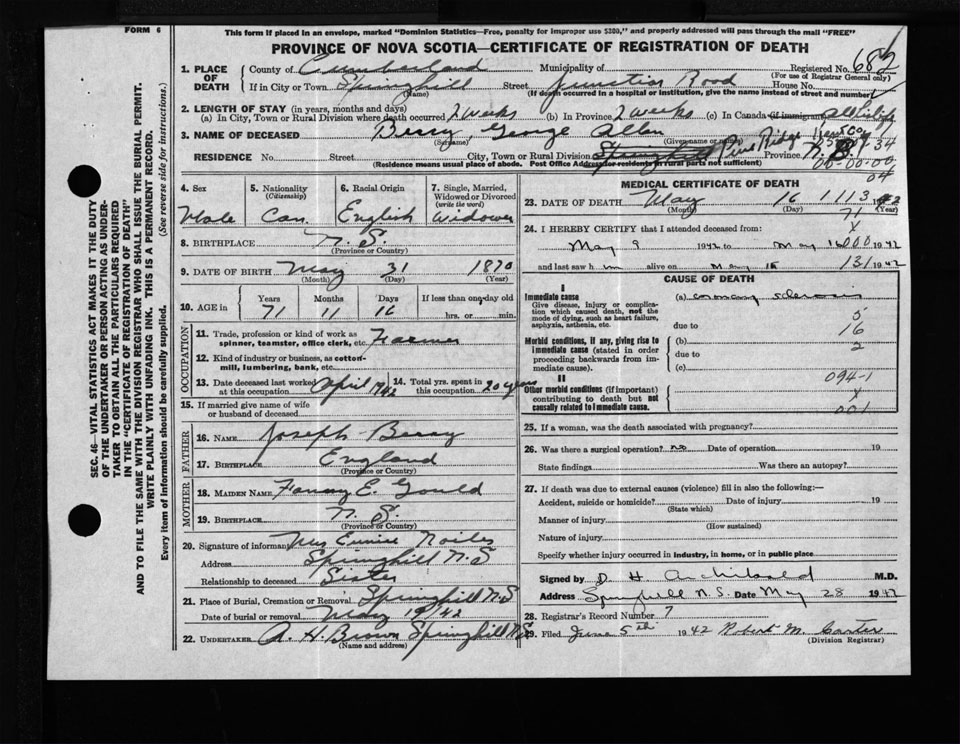 FORM 6
This form if placed in an envelope, marked "Dominion Statistics—Free, penalty for improper use $300," and properly addressed will pass through the mail "FREE"
PROVINCE OF NOVA SCOTIA—CERTIFICATE OF REGISTRATION OF DEATH
682
1. PLACE OF DEATH
County of Cumberland Municipality of Registered No.
(For use of Registrar General only)
If in City or Town Springhill Street Junction Road House No.
(Name) (If death occurred in a hospital or institution, give the name instead of street and number)
2. LENGTH OF STAY (in years, months and days)
(a) In City, Town or Rural Division where death occurred 2 weeks (b) In Province 2 weeks (c) In Canada (if immigrant) all his life
3. NAME OF DECEASED Berry, George Allen
(Surname) (Given name or names)
RESIDENCE No. Street City, Town or Rural Division Springhill Pine Ridge Province N. B.
(Residence means usual place of abode. Post Office Address for residents in rural parts not sufficient)
00-00-00
04
4. Sex
Male
5. Nationality
(Citizenship)
Can
6. Racial Origin
English
7. Single, Married, Widowed or Divorced
(write the word)
Widower
8. BIRTHPLACE N. S.
(Province or Country)
9. DATE OF BIRTH May 31 1870
(Month) (Day) (Year)
10. AGE in Years Months Days If less than one day old
71 11 16 hrs. or min.
OCCUPATION
11. Trade, profession or kind of work as spinner, teamster, office clerk, etc. Farmer
12. Kind of industry or business, as cotton-mill, lumbering, bank, etc.
13. Date deceased last worked at this occupation April 1942
14. Total yrs. spent in this occupation 20 years
15. If married give name of wife or husband of deceased
FATHER
16. NAME Joseph Berry
17. BIRTHPLACE England
(Province or Country)
MOTHER
18. MAIDEN NAME Fanny E. Gould
19. BIRTHPLACE N. S.
(Province or Country)
20. Signature of informant Mrs Eunice Noiles
Address Springhill N.S
Relationship to deceased Sister
21. Place of Burial, Cremation or Removal Springhill N.S
Date of burial or removal May 19/42
22. UNDERTAKER A. H. Brown Springhill N.S
(Name and address)
MEDICAL CERTIFICATE OF DEATH
23. DATE OF DEATH May 16 1113
(Month) (Day) (Year)
71
24. I HEREBY CERTIFY that I attended deceased from:
X
May 9 1942 to May 16 000 1942
and last saw h im alive on May 15 131 1942
CAUSE OF DEATH
I
Immediate cause
Give disease, injury or complication which caused death, not the mode of dying, such as heart failure, asphyxia, asthenia, etc.
(a) coronary sclerosis
due to
16
Morbid conditions, if any, giving rise to immediate cause (stated in order proceeding backwards from immediate cause).
(b)
2
due to
(c)
II
094-1
Other morbid conditions (if important) contributing to death but not causally related to immediate cause.
X
001
25. If a woman, was the death associated with pregnancy?
26. Was there a surgical operation? no Date of operation 19
State findings Was there an autopsy?
27. If death was due to external causes (violence) fill in also the following:—
Accident, suicide or homicide? Date of injury 19
(State which)
Manner of injury
(How sustained)
Nature of injury
Specify whether injury occurred in industry, in home, or in public place
Signed by D. H. Archibald M.D.
Address Springhill N.S. Date May 28 1942
28. Registrar's Record Number 7
29. Filed June 5th 1942 Robert M. Carter
(Division Registrar)
SEC. 46—VITAL STATISTICS ACT MAKES IT THE DUTY
OF THE UNDERTAKER OR PERSON ACTING AS UNDER-
TAKER TO OBTAIN ALL THE PARTICULARS REQUIRED
IN THE "CERTIFICATE OF REGISTRATION OF DEATH"
AND TO FILE THE SAME WITH THE DIVISION REGISTRAR WHO SHALL ISSUE THE BURIAL PERMIT.
WRITE PLAINLY WITH UNFADING INK. THIS IS A PERMANENT RECORD.
Every item of information should be carefully supplied. (See reverse side for instructions.)